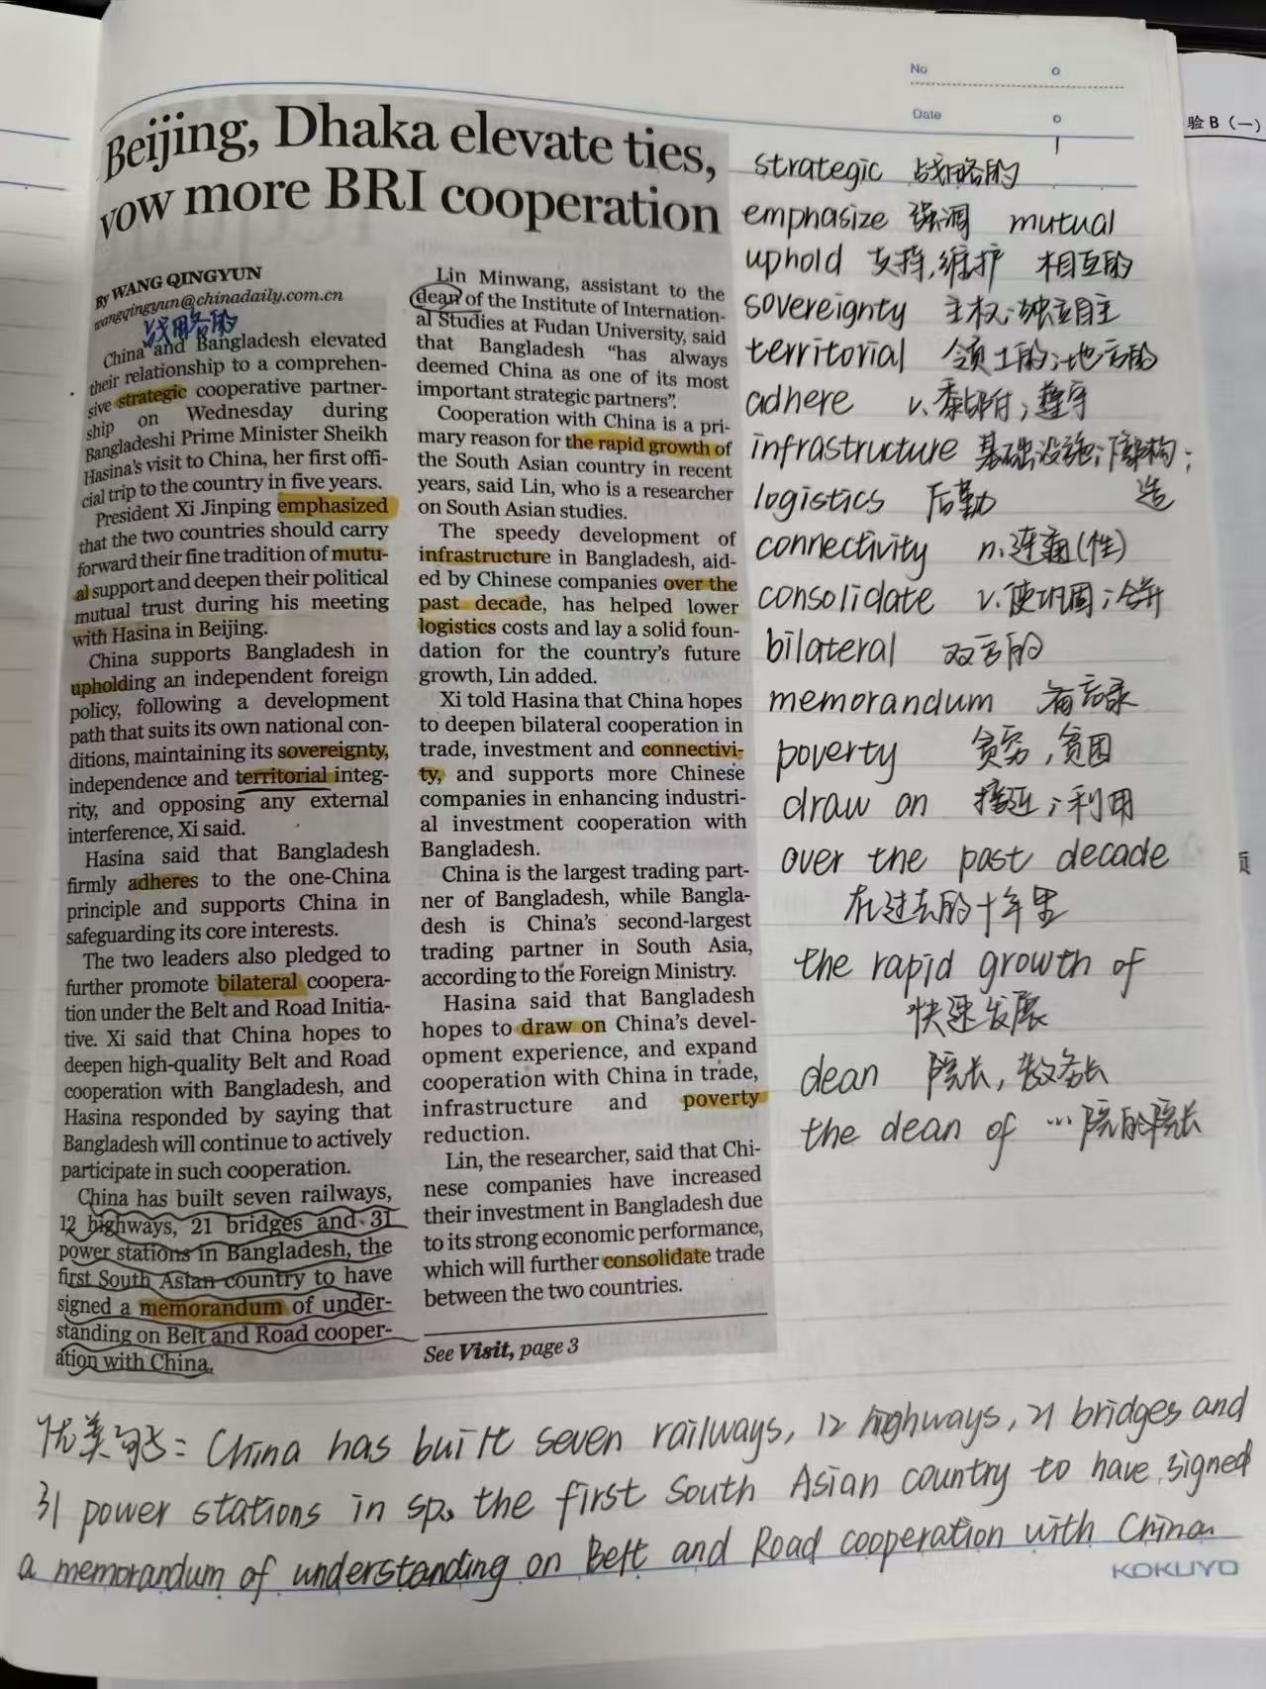 No
Date
验B（一）
Beijing, Dhaka elevate ties,
vow more BRI cooperation
By WANG QINGYUN
wangqingyun@chinadaily.com.cn
战略的
China and Bangladesh elevated
their relationship to a comprehen-
sive strategic cooperative partner-
ship on Wednesday during
Bangladeshi Prime Minister Sheikh
Hasina's visit to China, her first offi-
cial trip to the country in five years.
President Xi Jinping emphasized
that the two countries should carry
forward their fine tradition of mutu-
al support and deepen their political
mutual trust during his meeting
with Hasina in Beijing.
China supports Bangladesh in
upholding an independent foreign
policy, following a development
path that suits its own national con-
ditions, maintaining its sovereignty,
independence and territorial integ-
rity, and opposing any external
interference, Xi said.
Hasina said that Bangladesh
firmly adheres to the one-China
principle and supports China in
safeguarding its core interests.
The two leaders also pledged to
further promote bilateral coopera-
tion under the Belt and Road Initia-
tive. Xi said that China hopes to
deepen high-quality Belt and Road
cooperation with Bangladesh, and
Hasina responded by saying that
Bangladesh will continue to actively
participate in such cooperation.
China has built seven railways,
12 highways, 21 bridges and 31
power stations in Bangladesh, the
first South Asian country to have
signed a memorandum of under-
standing on Belt and Road cooper-
ation with China.
Lin Minwang, assistant to the
dean of the Institute of Internation-
al Studies at Fudan University, said
that Bangladesh "has always
deemed China as one of its most
important strategic partners".
Cooperation with China is a pri-
mary reason for the rapid growth of
the South Asian country in recent
years, said Lin, who is a researcher
on South Asian studies.
The speedy development of
infrastructure in Bangladesh, aid-
ed by Chinese companies over the
past decade, has helped lower
logistics costs and lay a solid foun-
dation for the country's future
growth, Lin added.
Xi told Hasina that China hopes
to deepen bilateral cooperation in
trade, investment and connectivi-
ty, and supports more Chinese
companies in enhancing industri-
al investment cooperation with
Bangladesh.
China is the largest trading part-
ner of Bangladesh, while Bangla-
desh is China's second-largest
trading partner in South Asia,
according to the Foreign Ministry.
Hasina said that Bangladesh
hopes to draw on China's devel-
opment experience, and expand
cooperation with China in trade,
infrastructure and poverty
reduction.
Lin, the researcher, said that Chi-
nese companies have increased
their investment in Bangladesh due
to its strong economic performance,
which will further consolidate trade
between the two countries.
See Visit, page 3
strategic 战略的
emphasize 强调 mutual
uphold 支持,维护 相互的
sovereignty 主权;独立自主
territorial 领土的;地方的
adhere v.黏附;遵守
infrastructure 基础设施;架构;
logistics 后勤 造
connectivity n.连通(性)
consolidate v.使巩固;合并
bilateral 双方的
memorandum 备忘录
poverty 贫穷,贫困
draw on 接近;利用
over the past decade
在过去的十年里
the rapid growth of
快速发展
dean 院长,教务长
the dean of …院的院长
优美句子: China has built seven railways, 12 highways, 21 bridges and
31 power stations in sp. the first South Asian country to have signed
a memorandum of understanding on Belt and Road cooperation with China.
KOKUYO